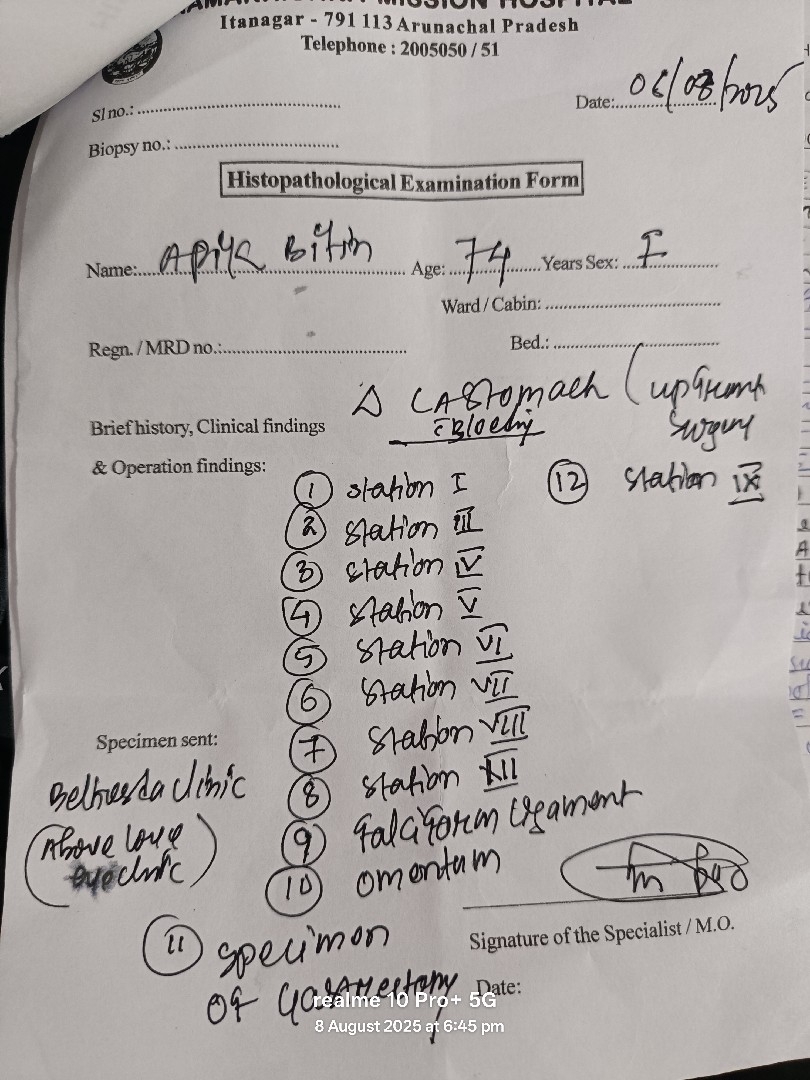 MISSION HOSPITAL
Itanagar - 791 113 Arunachal Pradesh
Telephone : 2005050 / 51
Sl no.:
Date: 06/08/2025
Biopsy no.:
Histopathological Examination Form
Name: Bitin Age: 74 Years Sex: F
Ward / Cabin:
Regn. / MRD no.:
Bed.:
Δ CA Stomach (upfront
Bleeding surgery
Brief history, Clinical findings
& Operation findings:
① Station I
⑫ Station IX
② Station III
③ Station IV
④ Station V
⑤ Station VI
⑥ Station VII
⑦ Station VIII
⑧ Station XII
Specimen sent:
Bethesda clinic
(Above Love eye clinic)
⑨ Falciform ligament
⑩ Omentum
Signature of the Specialist / M.O.
⑪ Specimen
of Gastrectomy
Date:
realme 10 Pro+ 5G
8 August 2025 at 6:45 pm